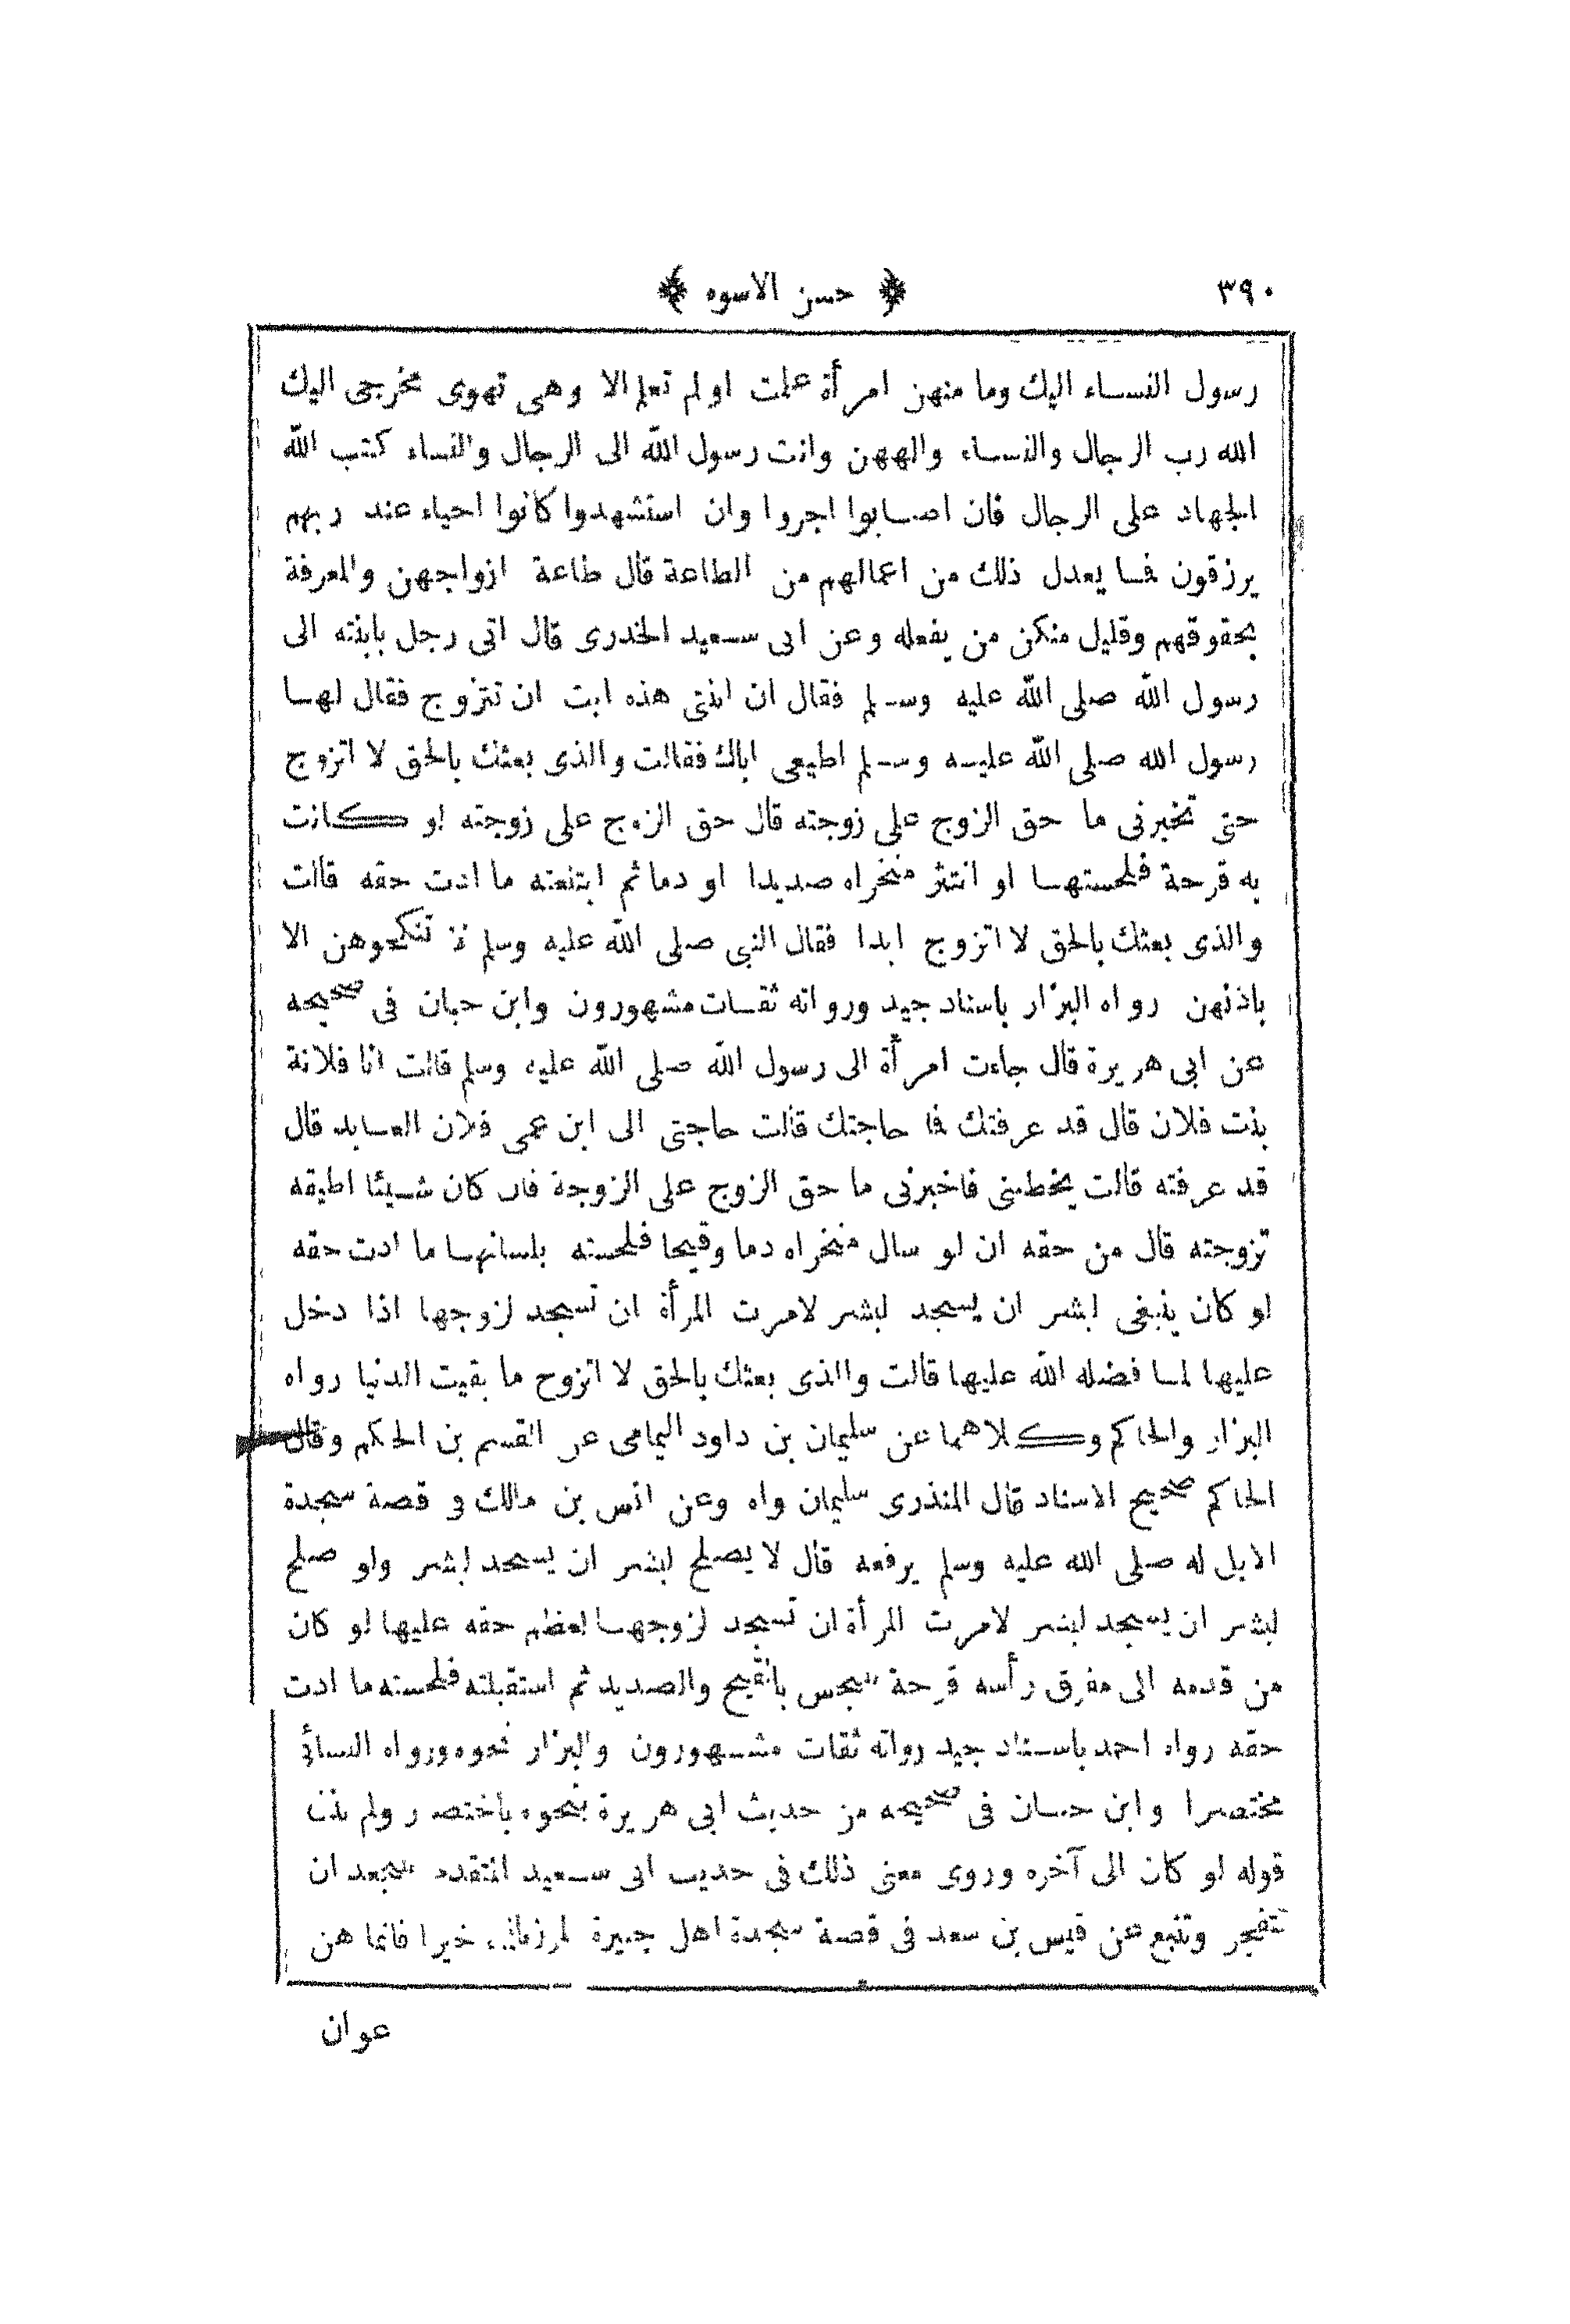 ٣٩٠ ﴿ حسن الاسوه ﴾
رسول النساء اليك وما منهن امرأة علمت او لم تعلم الا وهى تهوى مخرجى اليك
الله رب الرجال والنساء والههن وانت رسول الله الى الرجال والنساء كتب الله
الجهاد على الرجال فان اصابوا اجروا وان استشهدوا كانوا احياء عند ربهم
يرزقون فما يعدل ذلك من اعمالهم من الطاعة قال طاعة ازواجهن والمعرفة
بحقوقهم وقليل منكن من يفعله وعن ابى سعيد الخدرى قال اتى رجل بابنته الى
رسول الله صلى الله عليه وسلم فقال ان ابنتى هذه ابت ان تتزوج فقال لها
رسول الله صلى الله عليه وسلم اطيعى اباك فقالت والذى بعثك بالحق لا اتزوج
حتى تخبرنى ما حق الزوج على زوجته قال حق الزوج على زوجته لو كانت
به قرحة فلحستها او انتثر منخراه صديدا او دما ثم ابتلعته ما ادت حقه قالت
والذى بعثك بالحق لا اتزوج ابدا فقال النبى صلى الله عليه وسلم لا تنكحوهن الا
باذنهن رواه البزار باسناد جيد ورواته ثقات مشهورون وابن حبان فى صحيحه
عن ابى هريرة قال جاءت امرأة الى رسول الله صلى الله عليه وسلم قالت انا فلانة
بنت فلان قال قد عرفتك فما حاجتك قالت حاجتى الى ابن عمى فلان العابد قال
قد عرفته قالت يخطبنى فاخبرنى ما حق الزوج على الزوجة فان كان شيئا اطيقه
تزوجته قال من حقه ان لو سال منخراه دما وقيحا فلحسته بلسانها ما ادت حقه
لو كان ينبغى لبشر ان يسجد لبشر لامرت المرأة ان تسجد لزوجها اذا دخل
عليها لما فضله الله عليها قالت والذى بعثك بالحق لا اتزوج ما بقيت الدنيا رواه
البزار والحاكم وكلاهما عن سليمان بن داود اليمامى عن القسم بن الحكم وقال
الحاكم صحيح الاسناد قال المنذرى سليمان واه وعن انس بن مالك فى قصة سجدة
الابل له صلى الله عليه وسلم يرفعه قال لا يصلح لبشر ان يسجد لبشر ولو صلح
لبشر ان يسجد لبشر لامرت المرأة ان تسجد لزوجها لعظم حقه عليها لو كان
من قدمه الى مفرق رأسه قرحة تنبجس بالقيح والصديد ثم استقبلته فلحسته ما ادت
حقه رواه احمد باسناد جيد رواته ثقات مشهورون والبزار نحوه ورواه النسائى
مختصرا وابن حبان فى صحيحه من حديث ابى هريرة بنحوه باختصار ولم يذكر
قوله لو كان الى آخره وروى معنى ذلك فى حديث ابى سعيد المتقدم
تتفجر وتنبع عن قيس بن سعد فى قصة سجدة اهل خيرا فانما هن
عوان